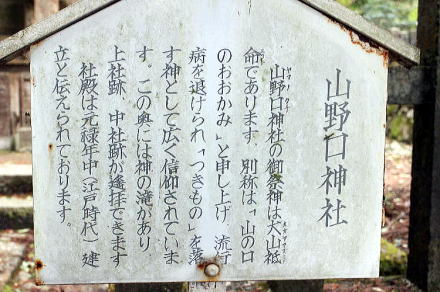 山野口神社
山野口神社の御祭神は大山祗
命であります。別称は「山の口
のおおかみ」と申し上げ 流行
病を退けられ「つきもの」を落
す神として広く信仰されていま
す。この奥には神の滝があり、
上社跡、中社跡が遙拝できます
社殿は元禄年中（江戸時代）建
立と伝えられております。